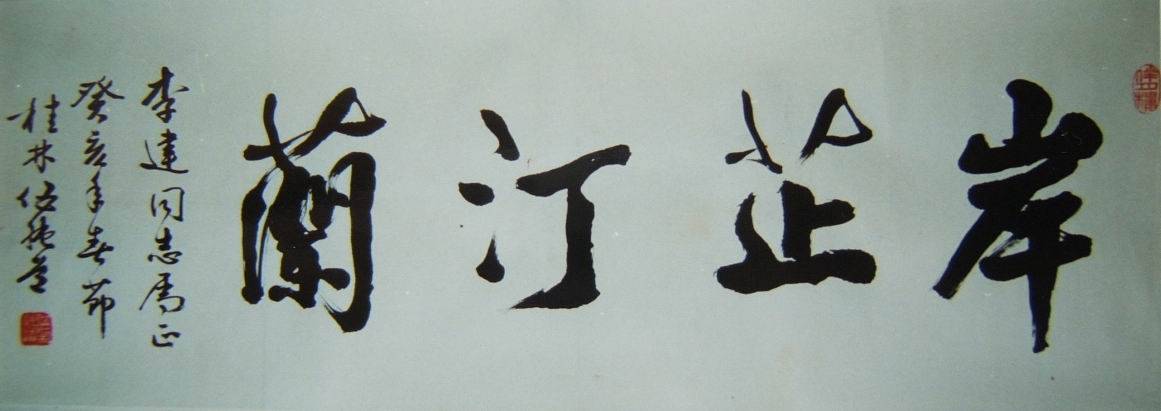 岸芷汀蘭
李建同志属正
癸亥年春節
桂林伍純道